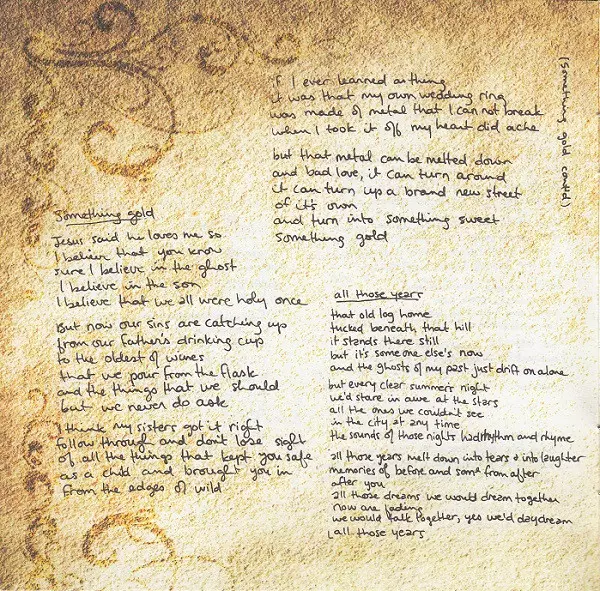 Something gold
Jesus said he loves me so
I believe that you know
sure I believe in the ghost
I believe in the son
I believe that we all were holy once
But now our sins are catching up
from our father's drinking cup
to the oldest of wines
that we pour from the flask
and the things that we should
but we never do ask
I think my sisters got it right
follow through and don't lose sight
of all the things that kept you safe
as a child and brought you in
from the edges of wild.
(something gold contd)
if I ever learned a thing
it was that my own wedding ring
was made of metal that I can not break
when I took it off my heart did ache
but that metal can be melted down
and bad love, it can turn around
it can turn up a brand new street
of it's own
and turn into something sweet
something gold
all those years
that old log home
tucked beneath that hill
it stands there still
but it's someone else's now
and the ghosts of my past just drift on alone
but every clear summer's night
we'd stare in awe at the stars
all the ones we couldn't see
in the city at any time
the sounds of those nights had rhythm and rhyme
all those years melt down into tears & into laughter
memories of before and some from after
after you
all those dreams we would dream together
now are fading
we would talk together, yes we'd daydream
all those years